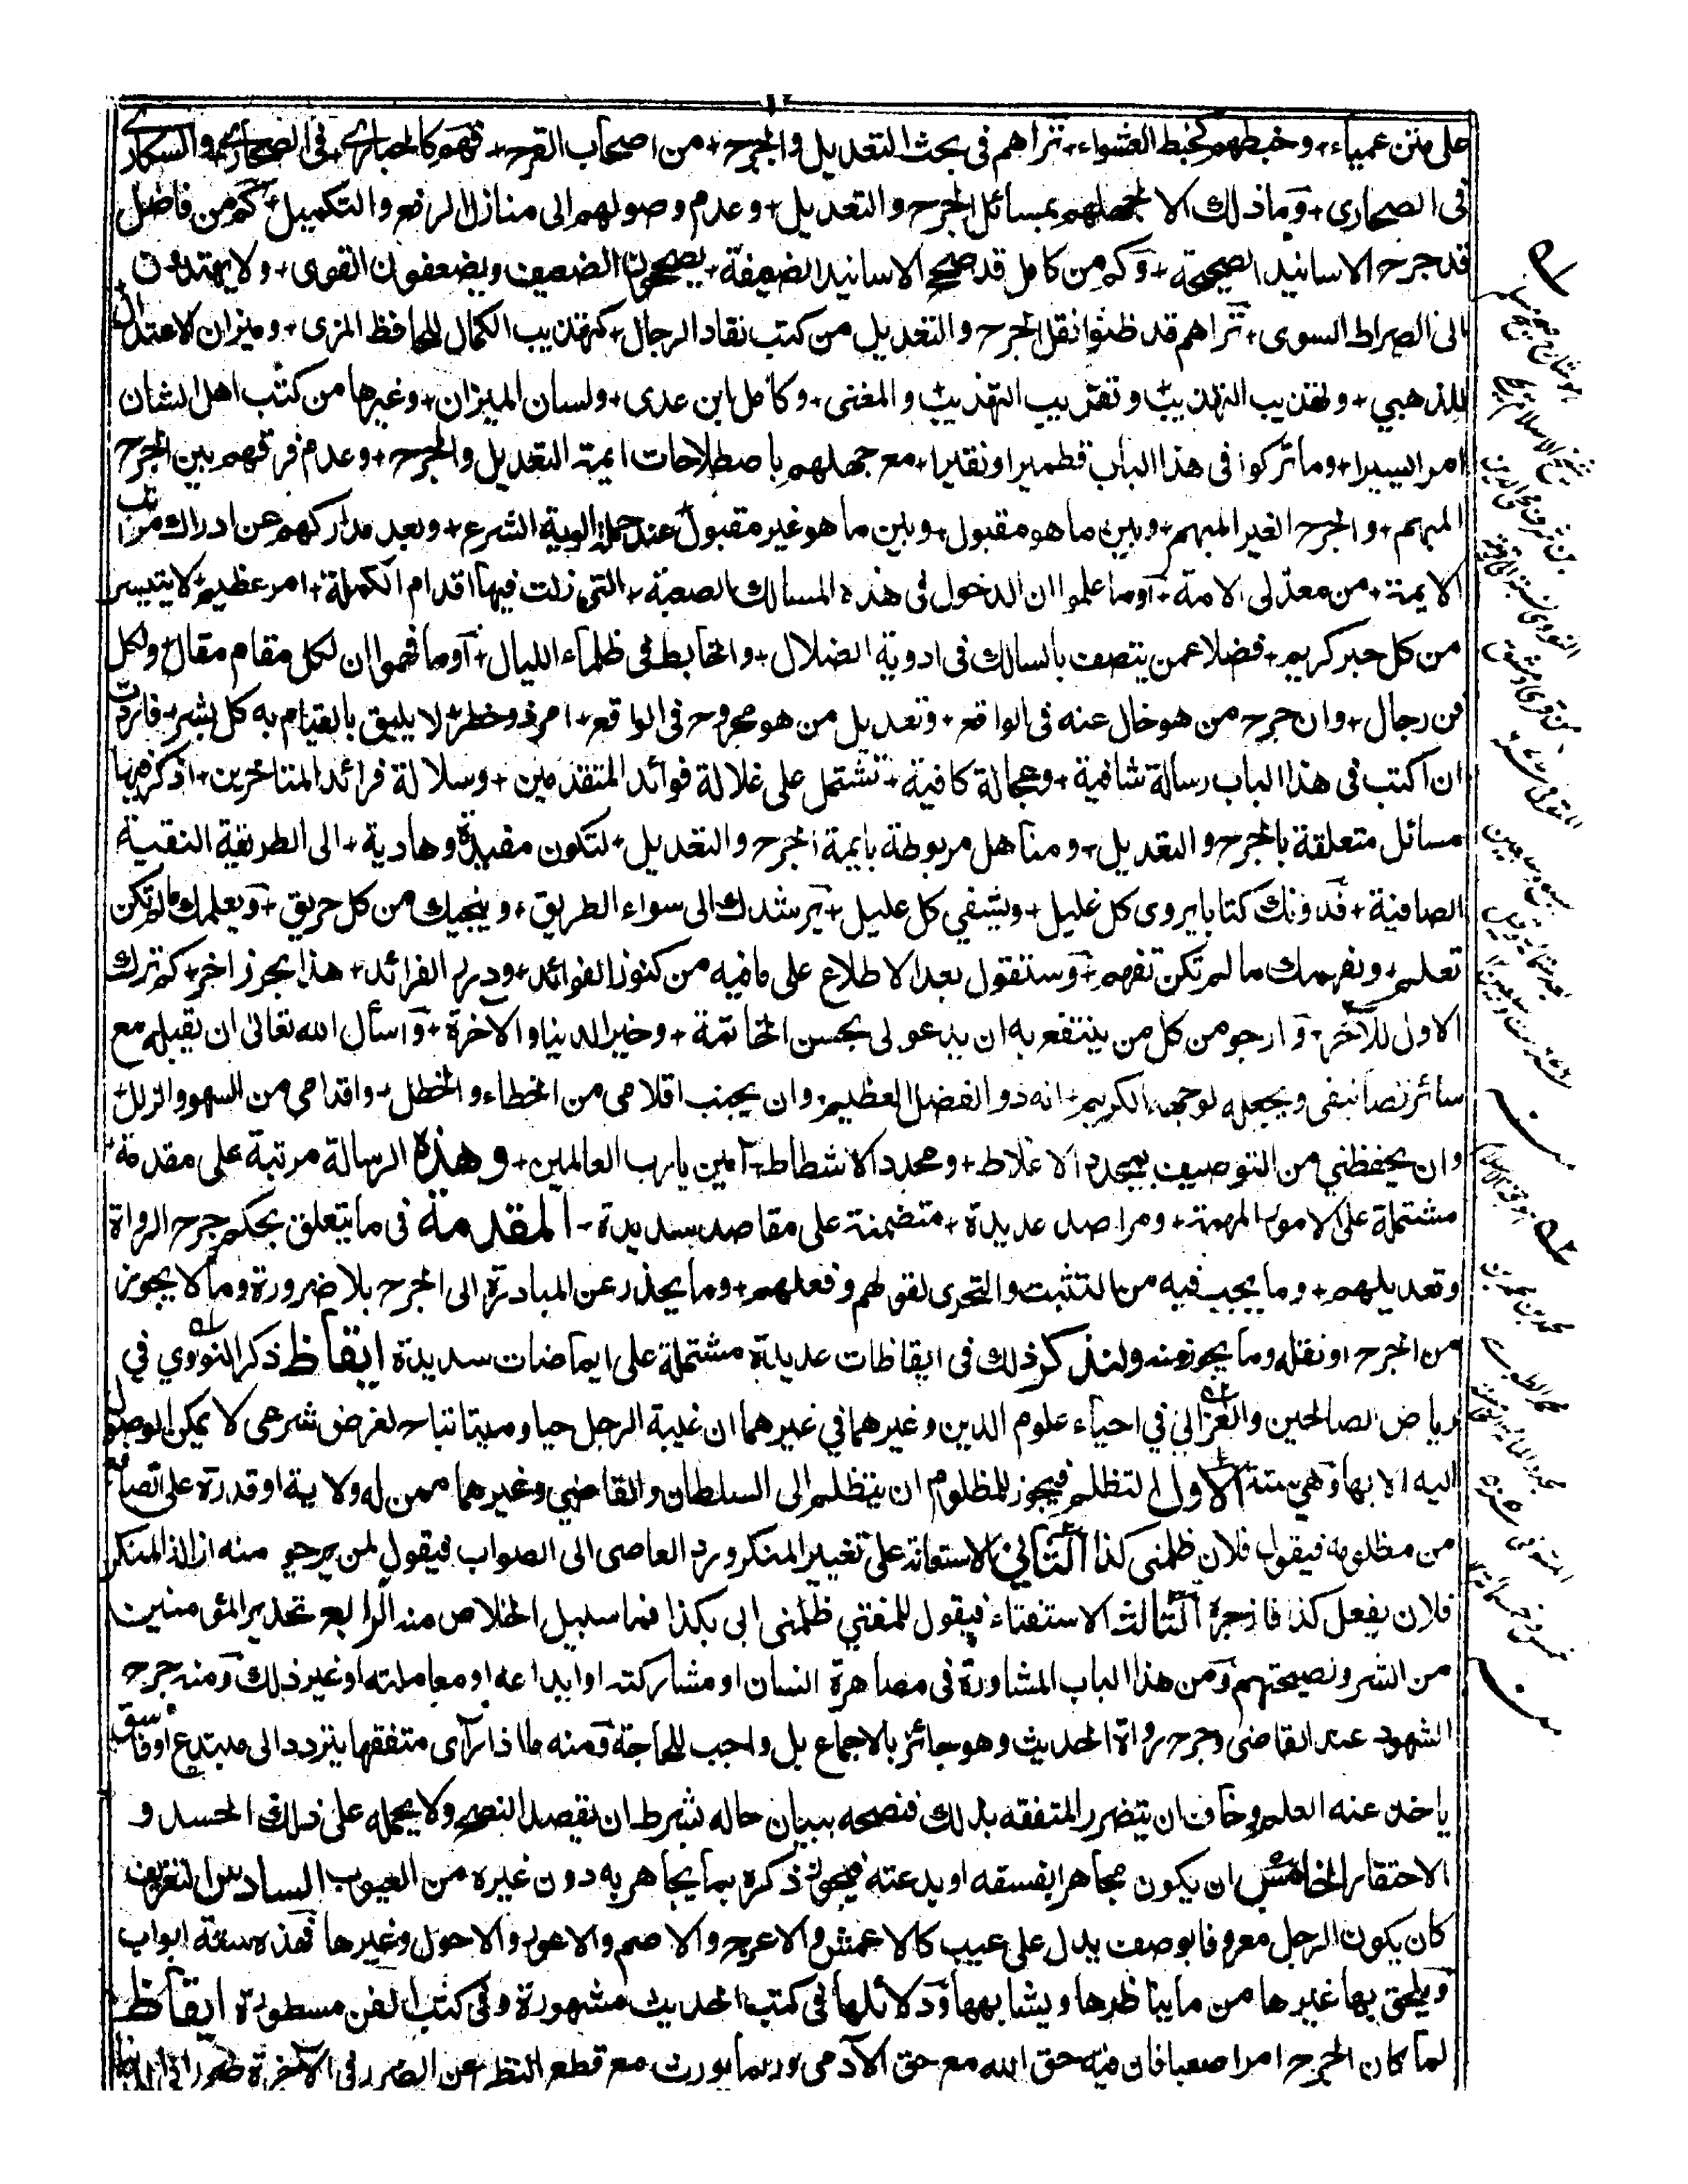 ٢
على متن عمياء+ وخبطهم كخبط العشواء+ تراهم فى بحث التعديل والجرح+ من اصحاب القرح+ فهم كالحبارى+ فى الصحارى+ والسكارى
فى الصحارى+ وما ذلك الا لجهلهم بمسائل الجرح والتعديل+ وعدم وصولهم الى منازل الرفع والتكميل+ كم من فاضل
قد جرح الاسانيد الصحيحة+ وكم من كامل قد صحح الاسانيد الضعيفة+ يصححون الضعيف ويضعفون القوى+ ولا يهتدون
الى الصراط السوى+ تراهم قد ظنوا نقل الجرح والتعديل من كتب نقاد الرجال+ كتهذيب الكمال للحافظ المزى+ وميزان الاعتدال
للذهبي+ وتهذيب التهذيب وتقريب التهذيب والمغنى+ وكامل ابن عدى+ ولسان الميزان+ وغيرها من كتب اهل الشان
امرا يسيرا+ وما تركوا فى هذا الباب قطميرا ونقيرا+ مع جهلهم باصطلاحات ايمة التعديل والجرح+ وعدم فرقهم بين الجرح
المبهم+ والجرح الغير المبهم+ وبين ما هو مقبول+ وبين ما هو غير مقبول عند حملة الوية الشرع+ وبعد مداركهم عن ادراك مراتب
الايمة+ من معدلى الامة+ اوما علموا ان الدخول فى هذه المسالك الصعبة+ التى زلت فيها اقدام الكملة+ امر عظيم+ لا يتيسر
من كل حبر كريم+ فضلا عمن يتصف بالسالك فى اودية الضلال+ والخابط فى ظلماء الليال+ اوما فهموا ان لكل مقام مقال+ ولكل
فن رجال+ وان جرح من هو خال عنه فى الواقع+ وتعديل من هو مجروح فى الواقع+ امر ذو خطر+ لا يليق بالقيام به كل بشر+ فاردت
ان اكتب فى هذا الباب رسالة شافية+ وعجالة كافية+ تشتمل على غلالة فوائد المتقدمين+ وسلالة فرائد المتاخرين+ اذكر فيها
مسائل متعلقة بالجرح والتعديل+ ومناهل مربوطة بايمة الجرح والتعديل+ لتكون مفيدة وهادية+ الى الطريقة النقية
الصافية+ فدونك كتابا يروى كل غليل+ ويشفي كل عليل+ يرشدك الى سواء الطريق+ وينجيك من كل حريق+ ويعلمك ما لم تكن
تعلم+ ويفهمك ما لم تكن تفهم+ وستقول بعد الاطلاع على ما فيه من كنوز الفوائد+ ودرر الفرائد+ هذا بحر زاخر+ كم ترك
الاول للآخر+ وارجو من كل من ينتفع به ان يدعو لى بحسن الخاتمة+ وخير الدنيا والآخرة+ واسأل الله تعالى ان تقبله مع
سائر تصانيفى ويجعله لوجهه الكريم+ انه ذو الفضل العظيم+ وان يجنب اقلامى من الخطاء والخطل+ واقدامى من السهو والزلل+
وان يحفظني من التوصيف بمجدد الاغلاط+ ومحدد الاشطاط+ آمين يا رب العالمين+ وهذه الرسالة مرتبة على مقدمة+
مشتملة على الامور المهمة+ ومراصد عديدة+ متضمنة على مقاصد سديدة- المقدمة فى ما يتعلق بحكم جرح الرواة
وتعديلهم+ وما يجب فيه من التثبت والتحرى لقولهم وفعلهم+ وما يحذر عن المبادرة الى الجرح بلا ضرورة وما لا يجوز
من الجرح او نقله وما يجوز منه ولنذكر ذلك فى ايقاظات عديدة مشتملة على ايماضات سديدة ايقاظ ذكر النووي في
رياض الصالحين والغزالي في احياء علوم الدين وغيرهما في غيرهما ان غيبة الرجل حيا وميتا تباح لغرض شرعى لا يمكن الوصول
اليه الا بها وهي ستة الاول التظلم فيجوز للمظلوم ان يتظلم الى السلطان والقاضي وغيرهما ممن له ولاية او قدرة على انصافه
من مظلومه فيقول فلان ظلمنى كذا الثاني الاستعانة على تغيير المنكر ورد العاصى الى الصواب فيقول لمن يرجو منه ازالة المنكر
فلان يفعل كذا فازجره الثالث الاستفتاء فيقول للمفتي ظلمنى ابى بكذا فما سبيل الخلاص منه الرابع تحذير المؤمنين
من الشر ونصيحتهم ومن هذا الباب المشاورة فى مصاهرة انسان او مشاركته او ايداعه او معاملته او غير ذلك ومنه جرح
الشهود عند القاضى وجرح رواة الحديث وهو جائز بالاجماع بل واجب للحاجة ومنه ما اذا رآى متفقها يتردد الى مبتدع او فاسق
ياخذ عنه العلم وخاف ان يتضرر المتفقه بذلك فنصحه ببيان حاله بشرط ان يقصد النصح ولا يحمله على ذلك الحسد و
الاحتقار الخامس ان يكون مجاهرا بفسقه او بدعته فيجوز ذكره بما يجاهر به دون غيره من العيوب السادس التعريف
كان يكون الرجل معروفا بوصف يدل على عيب كالاعمش والاعرج والاصم والاعور والاحول وغيرها فهذه ستة ابواب
ويلحق بها غيرها من ما يناظرها ويشابهها ودلائلها فى كتب الحديث مشهورة وفى كتب الفن مسطورة ايقاظ
لما كان الجرح امرا صعبا فان فيه حق الله مع حق الآدمى وربما يورث مع قطع النظر عن الضرر فى الآخرة ضررا فى الدنيا